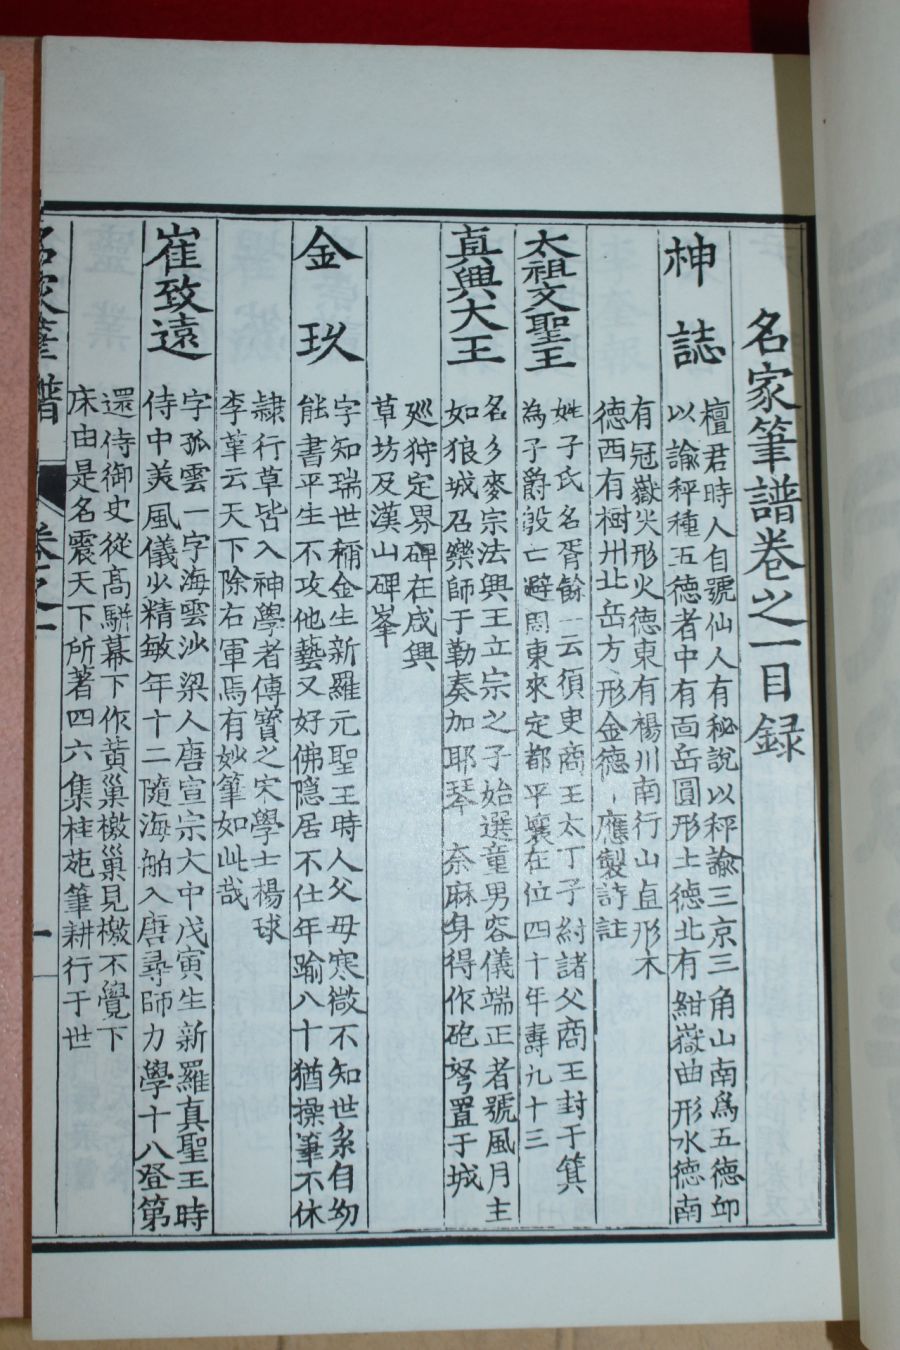 名家筆譜卷之一目録
神誌
檀君時人自號仙人有秘說以秤諭三京三角山南爲五德丘
以諭秤種五德者中有面岳圓形土德北有紺嶽曲形水德南
有冠嶽尖形火德東有楊州南行山直形木
德西有樹州北岳方形金德 應製詩註
太祖文聖王
姓子氏名胥餘一云須臾商王太丁子紂諸父商王封于箕
為子爵殷亡避周東來定都平壤在位四十年壽九十三
真興大王
名彡麥宗法興王立宗之子始選童男容儀端正者號風月主
如狼城召樂師于勒奏加耶琴 奈麻身得作砲弩置于城
廵狩定界碑在咸興
草坊及漢山碑峯
金玖
字知瑞世稱金生新羅元聖王時人父母寒微不知世系自幼
能書平生不攻他藝又好佛隱居不仕年踰八十猶操筆不休
隷行草皆入神學者傳寳之宋學士楊球
李革云天下除右軍焉有妙筆如此哉
崔致遠
字孤雲一字海雲沙梁人唐宣宗大中戊寅生新羅真聖王時
侍中美風儀少精敏年十二隨海舶入唐尋師力學十八登第
還侍御史從高騈幕下作黃巢檄巢見檄不覺下
床由是名震天下所著四六集桂苑筆耕行于世
名家筆譜 卷之一 一